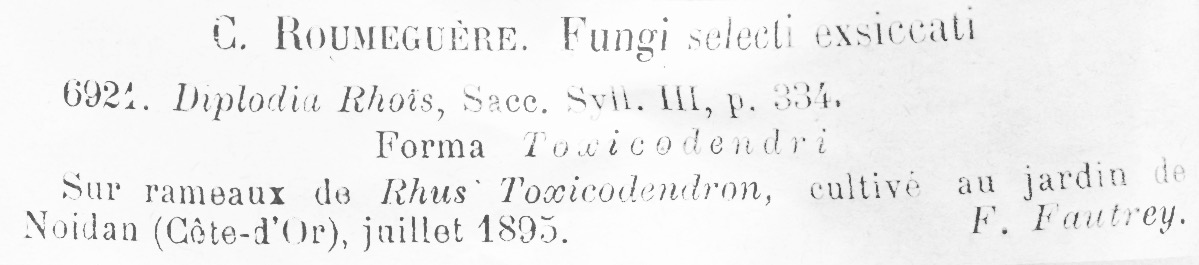 C. ROUMEGUÈRE. Fungi selecti exsiccati
6921. Diplodia Rhoïs, Sacc. Syll. III, p. 334.
Forma Toxicodendri
Sur rameaux de Rhus Toxicodendron, cultivé au jardin de
Noidan (Côte-d'Or), juillet 1895.
F. Fautrey.